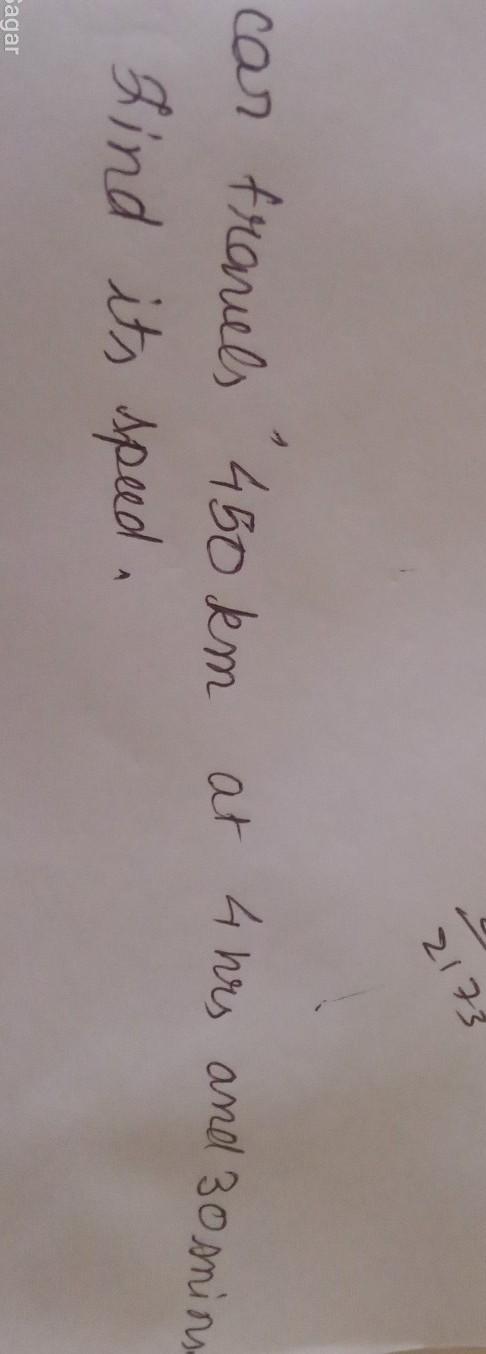 car travels 450 km at 4 hrs and 30 mins
Find its speed.
2173
Sagar